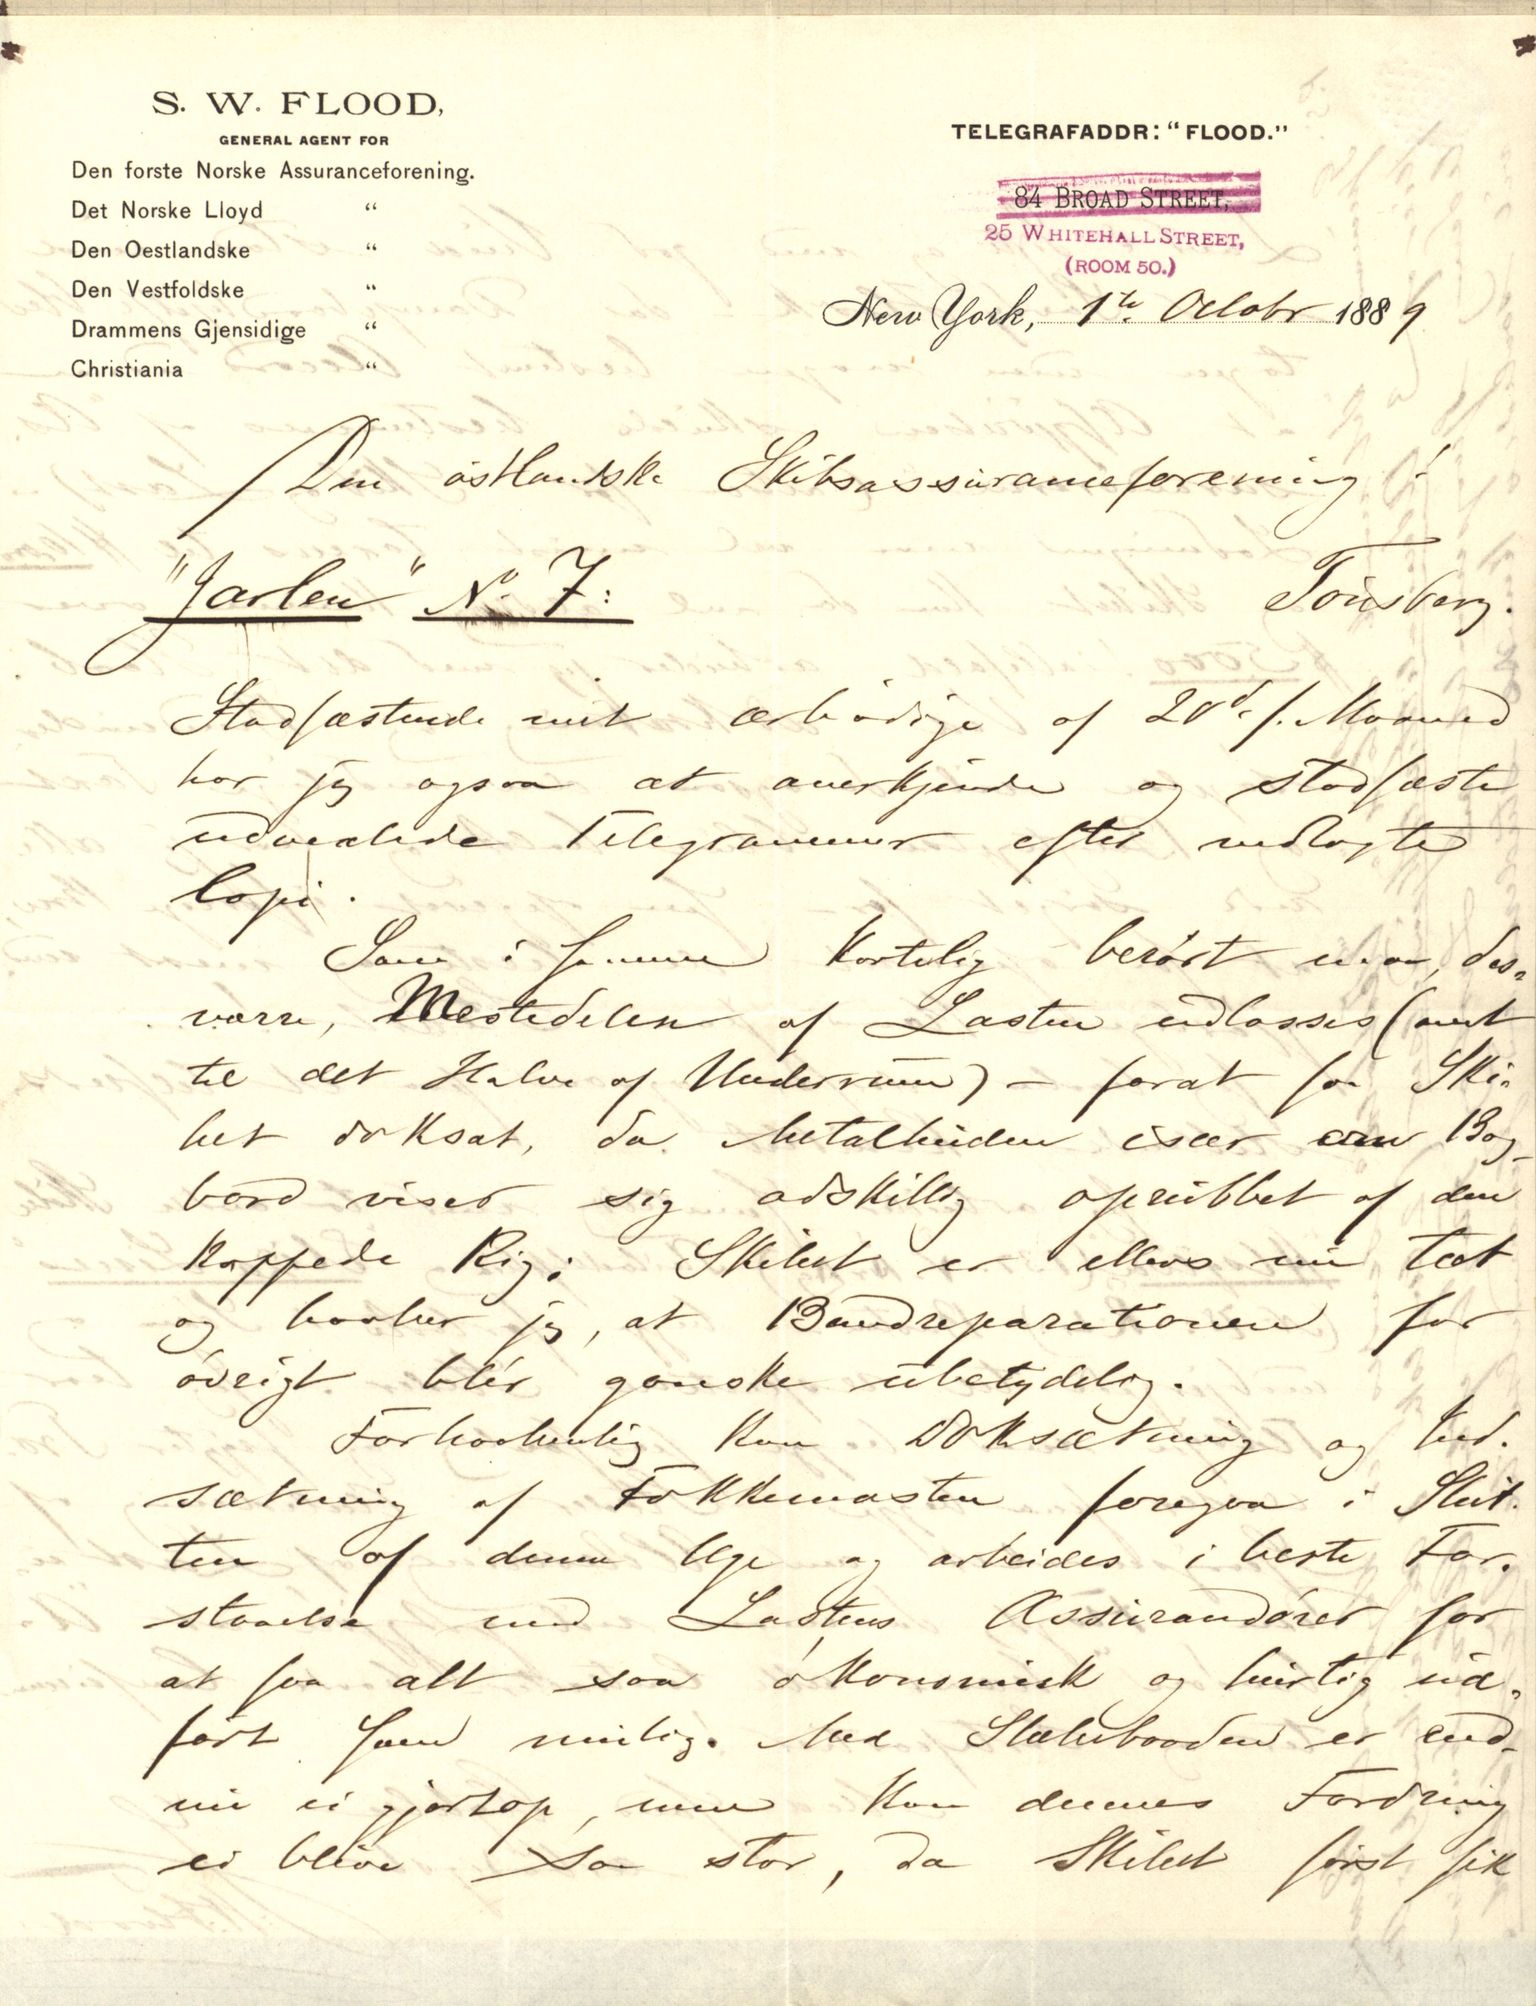 S. W. FLOOD,
GENERAL AGENT FOR
Den forste Norske Assuranceforening.
Det Norske Lloyd "
Den Oestlandske "
Den Vestfoldske "
Drammens Gjensidige "
Christiania "
TELEGRAFADDR: "FLOOD."
84 BROAD STREET,
25 WHITEHALL STREET,
(ROOM 50.)
New York, 1te Octobr 1889
Den östlandske Skibsassuranceforening!
"Jarlen" No. 7:
Tönsberg.
Stadfæstende mit ærbödige af 28d. f. Maaned
har jeg ogsaa at anerkjende og stadfæste
udvexlede Telegrammer efter vedlagte
Copi.
Som i samme kortelig berört maa, des-
værre, Mestedelen af Lasten udlosses (omt
til det Halve af Underrum) – forat faa Ski-
bet doksat, da Metalhuden især om Bag-
bord viser sig adskillig oprubbet af den
kappede Rig; Skibet er ellers nu tæt
og haaber jeg, at Bundreparationen for
övrigt blir ganske ubetydelig.
Forhaabentlig kan Doksætning og Ind-
sætning af Fokkemasten foregaa i Slut-
ten af denne Uge og arbeides i beste For-
staaelse med Lastens Assurandörer for
at faa alt saa ökonomisk og hurtig ud-
fört som mulig. Med Slæbebaaden er end-
nu ei gjort op, men kan dennes Fordring
ei blive saa stor, da Skibet först fik